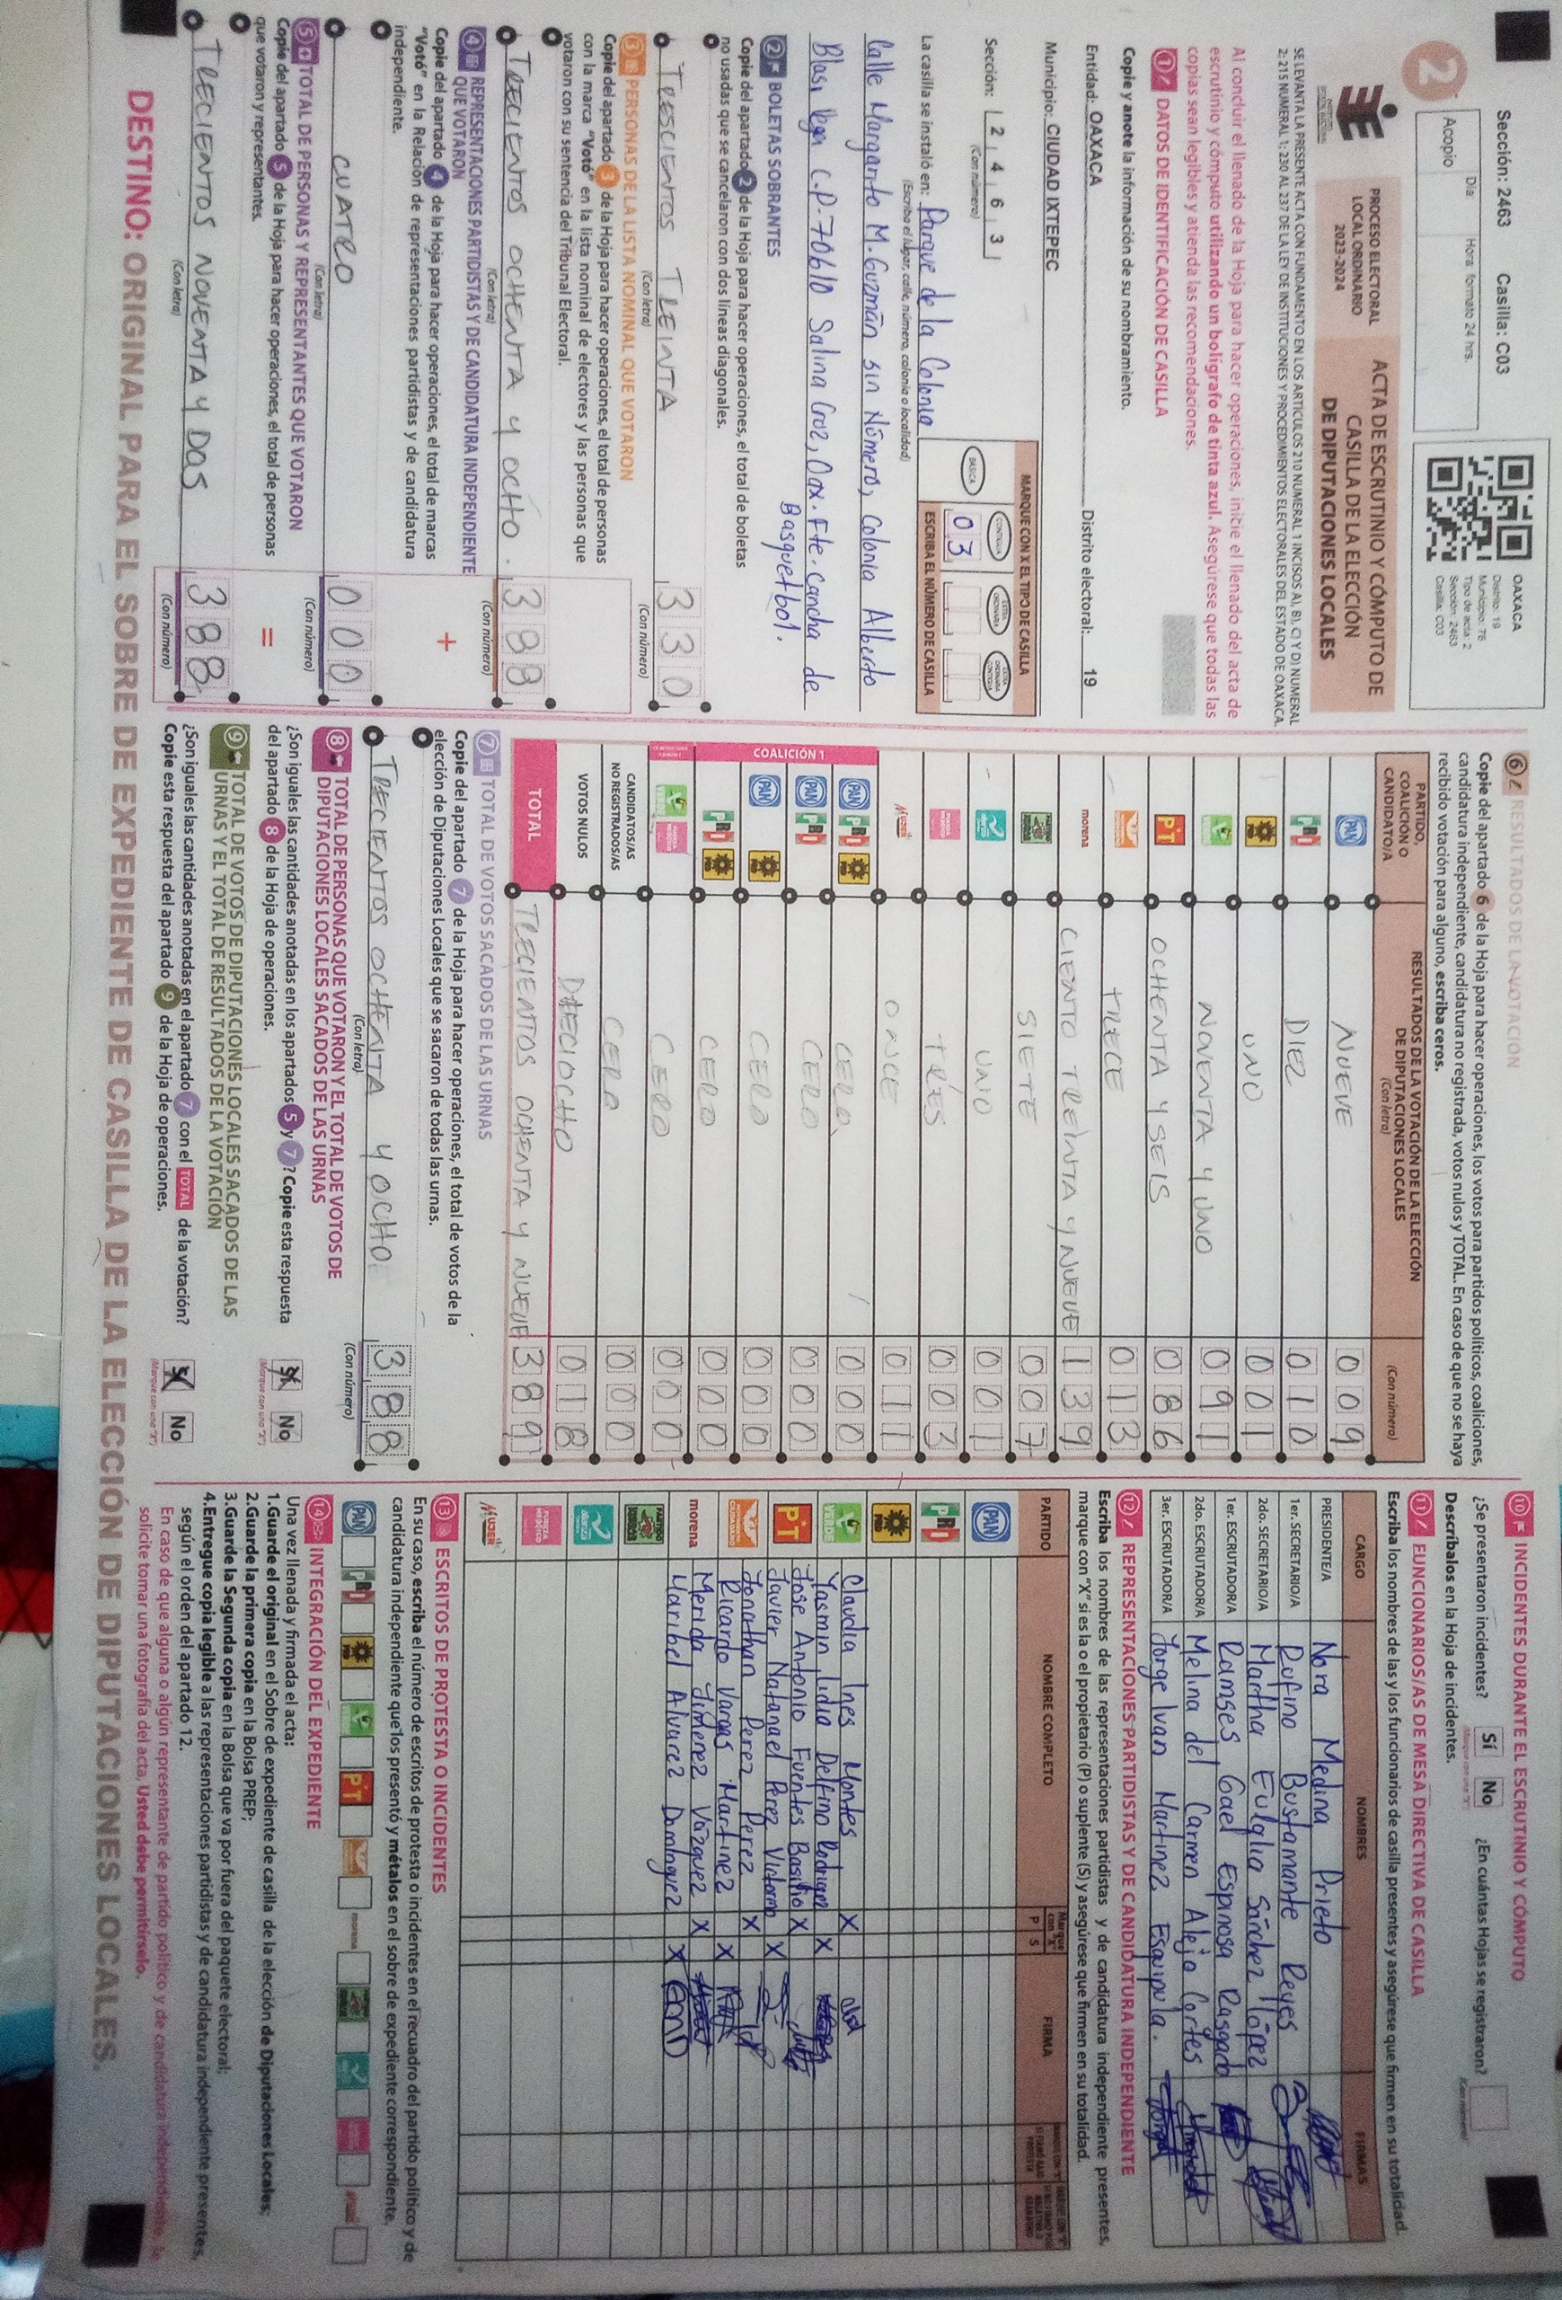 Sección: 2463 Casilla: C03
Día: Hora: formato 24 hrs.
Acopio
2
PROCESO ELECTORAL
LOCAL ORDINARIO
2023-2024
ACTA DE ESCRUTINIO Y CÓMPUTO DE
CASILLA DE LA ELECCIÓN
DE DIPUTACIONES LOCALES
OAXACA
Distrito: 19
Municipio: 76
Tipo de acta: 2
Sección: 2463
Casilla: C03
SE LEVANTA LA PRESENTE ACTA CON FUNDAMENTO EN LOS ARTÍCULOS 210 NUMERAL 1 INCISOS A), B), C) Y D) NUMERAL
2; 215 NUMERAL 1; 230 AL 237 DE LA LEY DE INSTITUCIONES Y PROCEDIMIENTOS ELECTORALES DEL ESTADO DE OAXACA.
Al concluir el llenado de la Hoja para hacer operaciones, inicie el llenado del acta de
escrutinio y cómputo utilizando un bolígrafo de tinta azul. Asegúrese que todas las
copias sean legibles y atienda las recomendaciones.
1 DATOS DE IDENTIFICACIÓN DE CASILLA
Copie y anote la información de su nombramiento.
Entidad: OAXACA Distrito electoral: 19
Municipio: CIUDAD IXTEPEC
Sección: 2 4 6 3
(Con número)
MARQUE CON X EL TIPO DE CASILLA
BÁSICA CONTIGUA EXTRA ORDINARIA EXTRA ORDINARIA CONTIGUA
03
ESCRIBA EL NÚMERO DE CASILLA
La casilla se instaló en: Parque de la Colonia
(Escriba el lugar, calle, número, colonia o localidad)
Calle Margarito M. Guzmán sin Número, Colonia Alberto
Blasi Vega C.P. 70610 Salina Cruz, Oax. Fte. Cancha de
Basquetbol.
2 BOLETAS SOBRANTES
Copie del apartado 2 de la Hoja para hacer operaciones, el total de boletas
no usadas que se cancelaron con dos líneas diagonales.
TRESCIENTOS TREINTA 330
(Con letra) (Con número)
3 PERSONAS DE LA LISTA NOMINAL QUE VOTARON
Copie del apartado 3 de la Hoja para hacer operaciones, el total de personas
con la marca "Votó" en la lista nominal de electores y las personas que
votaron con su sentencia del Tribunal Electoral.
TRECIENTOS OCHENTA Y OCHO. 388
(Con letra) (Con número)
4 REPRESENTACIONES PARTIDISTAS Y DE CANDIDATURA INDEPENDIENTE
QUE VOTARON
Copie del apartado 4 de la Hoja para hacer operaciones, el total de marcas
"Votó" en la Relación de representaciones partidistas y de candidatura
independiente.
+
CUATRO 000
(Con letra) (Con número)
5 TOTAL DE PERSONAS Y REPRESENTANTES QUE VOTARON
Copie del apartado 5 de la Hoja para hacer operaciones, el total de personas
que votaron y representantes.
=
TRECIENTOS NOVENTA Y DOS 388
(Con letra) (Con número)
6 RESULTADOS DE LA VOTACIÓN
Copie del apartado 6 de la Hoja para hacer operaciones, los votos para partidos políticos, coaliciones,
candidatura independiente, candidatura no registrada, votos nulos y TOTAL. En caso de que no se haya
recibido votación para alguno, escriba ceros.
PARTIDO, COALICIÓN O CANDIDATO/A
RESULTADOS DE LA VOTACIÓN DE LA ELECCIÓN
DE DIPUTACIONES LOCALES
(Con letra) (Con número)
PAN NUEVE 009
PRI DIEZ 010
PRD UNO 001
VERDE NOVENTA Y UNO 091
PT OCHENTA Y SEIS 086
TRECE 013
morena CIENTO TREINTA Y NUEVE 139
SIETE 007
UNO 001
TRES 003
Mujer ONCE 011
COALICIÓN 1
PAN PRI PRD CERO 000
PAN PRI CERO 000
PAN PRD CERO 000
PRI PRD CERO 000
CERO 000
CANDIDATOS/AS
NO REGISTRADOS/AS CERO 000
VOTOS NULOS DIECIOCHO 018
TOTAL TRECIENTOS OCHENTA Y NUEVE 389
7 TOTAL DE VOTOS SACADOS DE LAS URNAS
Copie del apartado 7 de la Hoja para hacer operaciones, el total de votos de la
elección de Diputaciones Locales que se sacaron de todas las urnas.
TRECIENTOS OCHENTA Y OCHO 388
(Con letra) (Con número)
8 TOTAL DE PERSONAS QUE VOTARON Y EL TOTAL DE VOTOS DE
DIPUTACIONES LOCALES SACADOS DE LAS URNAS
¿Son iguales las cantidades anotadas en los apartados 5 y 7? Copie esta respuesta
del apartado 8 de la Hoja de operaciones.
Sí No
(Marque con una "X")
9 TOTAL DE VOTOS DE DIPUTACIONES LOCALES SACADOS DE LAS
URNAS Y EL TOTAL DE RESULTADOS DE LA VOTACIÓN
¿Son iguales las cantidades anotadas en el apartado 7 con el TOTAL de la votación?
Copie esta respuesta del apartado 9 de la Hoja de operaciones.
Sí No
(Marque con una "X")
10 INCIDENTES DURANTE EL ESCRUTINIO Y CÓMPUTO
¿Se presentaron incidentes? Sí No ¿En cuántas Hojas se registraron?
(Marque con una "X") (Con número)
Descríbalos en la Hoja de incidentes.
11 FUNCIONARIOS/AS DE MESA DIRECTIVA DE CASILLA
Escriba los nombres de las y los funcionarios de casilla presentes y asegúrese que firmen en su totalidad.
CARGO NOMBRES FIRMAS
PRESIDENTE/A Nora Medina Prieto
1er. SECRETARIO/A Rufino Bustamante Reyes
2do. SECRETARIO/A Martha Eulalia Sánchez López
1er. ESCRUTADOR/A Ramses Gael Espinosa Rasgado
2do. ESCRUTADOR/A Melina del Carmen Alejo Cortes
3er. ESCRUTADOR/A Jorge Ivan Martinez Esquipula.
12 REPRESENTACIONES PARTIDISTAS Y DE CANDIDATURA INDEPENDIENTE
Escriba los nombres de las representaciones partidistas y de candidatura independiente presentes,
marque con "X" si es la o el propietario (P) o suplente (S) y asegúrese que firmen en su totalidad.
PARTIDO NOMBRE COMPLETO Marque con "X" P S FIRMA
PAN
PRI
PRD
VERDE Claudia Ines Montes X
Yasmin Lidia Delfino Rodriguez X
PT Jose Antonio Fuentes Basilio X
Javier Natanael Perez Victorino X
MOVIMIENTO CIUDADANO Jonathan Perez Perez X
Ricardo Vargas Martinez X
morena Merida Jimenez Vazquez X
Maribel Alvarez Dominguez X
Mujer
13 ESCRITOS DE PROTESTA O INCIDENTES
En su caso, escriba el número de escritos de protesta o incidentes en el recuadro del partido político y de
candidatura independiente que los presentó y métalos en el sobre de expediente correspondiente.
PAN PRI PRD VERDE PT morena
14 INTEGRACIÓN DEL EXPEDIENTE
Una vez llenada y firmada el acta:
1.Guarde el original en el Sobre de expediente de casilla de la elección de Diputaciones Locales;
2.Guarde la primera copia en la Bolsa PREP;
3.Guarde la Segunda copia en la Bolsa que va por fuera del paquete electoral;
4.Entregue copia legible a las representaciones partidistas y de candidatura independiente presentes,
según el orden del apartado 12.
En caso de que alguna o algún representante de partido político y de candidatura independiente, le
solicite tomar una fotografía del acta, Usted debe permitírselo.
DESTINO: ORIGINAL PARA EL SOBRE DE EXPEDIENTE DE CASILLA DE LA ELECCIÓN DE DIPUTACIONES LOCALES.